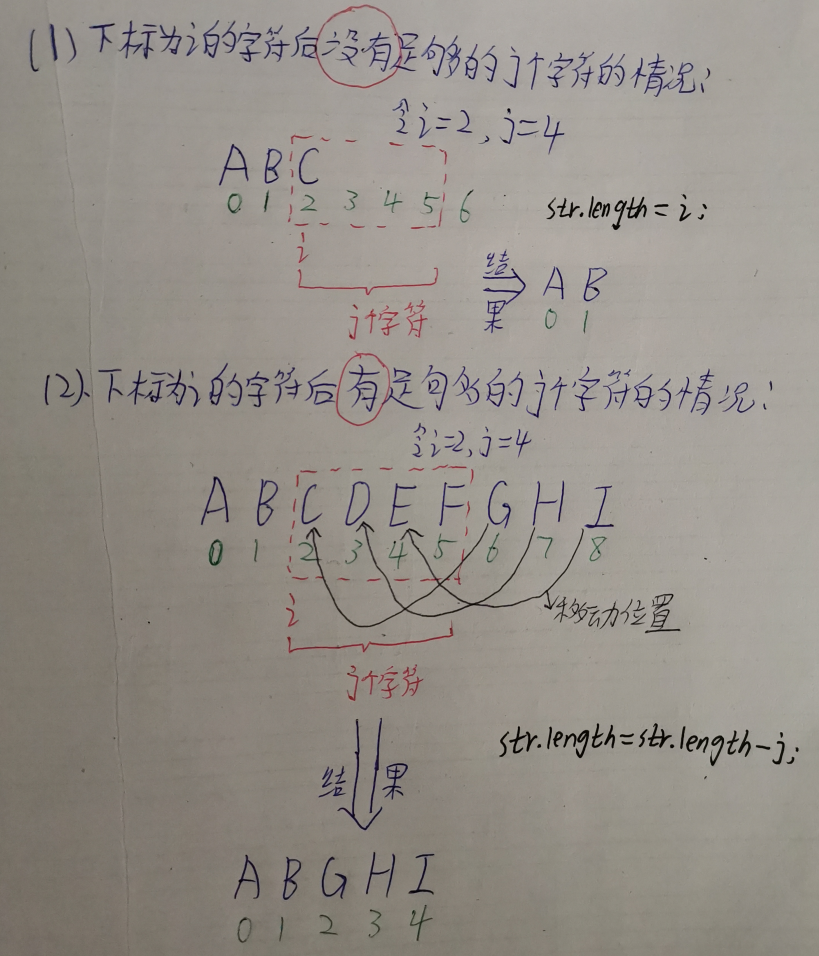 (1) 下标为i的字符后没有足够的j个字符的情况:
令i=2, j=4
A B C
0 1 2 3 4 5 6
str.length = i;
i
j个字符
结果
A B
0 1
(2). 下标为i的字符后有足够的j个字符的情况:
令i=2, j=4
A B C D E F G H I
0 1 2 3 4 5 6 7 8
i
移动位置
j个字符
str.length=str.length-j;
结果
A B G H I
0 1 2 3 4